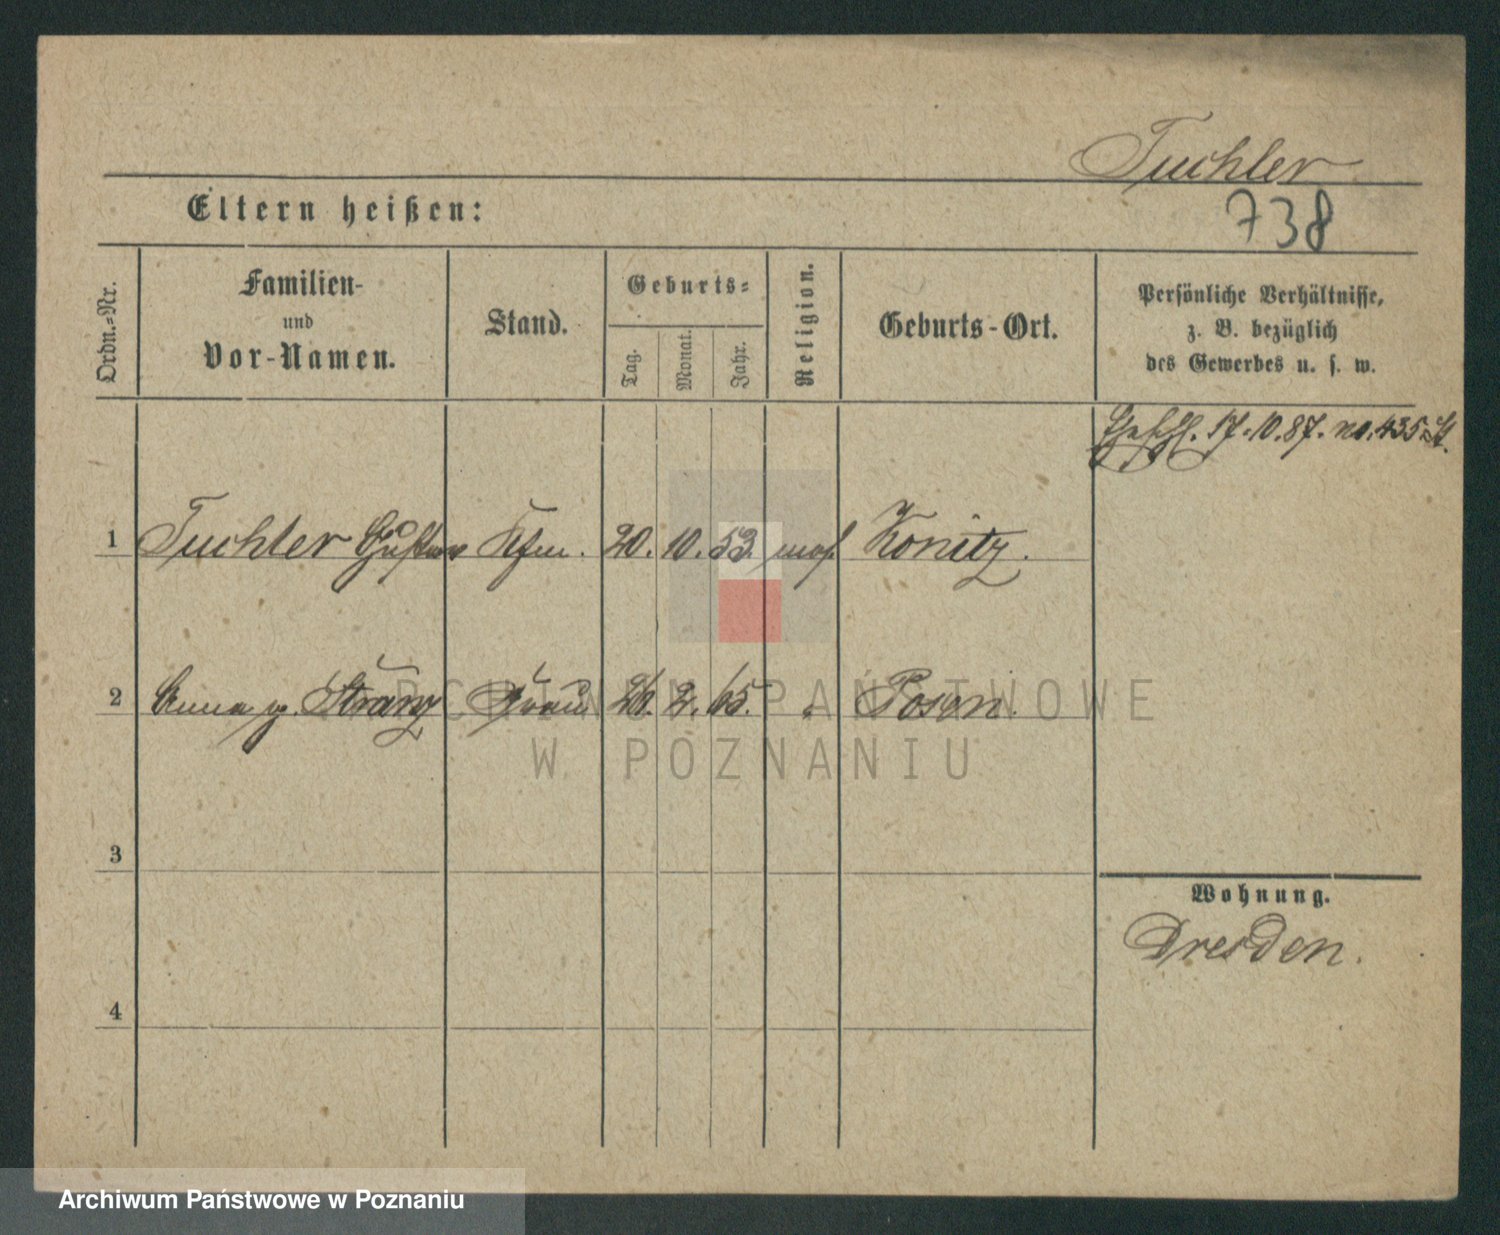 Tuchler
Eltern heißen:
738
Ordn.-Nr.
Familien-
und
Vor-Namen.
Stand.
Geburts-
Tag.
Monat.
Jahr.
Religion.
Geburts-Ort.
Persönliche Verhältnisse,
z. B. bezüglich
des Gewerbes u. s. w.
17.10.87. no. 435
1 Tuchler Gustav Kfm. 20. 10. 53. mos. Konitz.
2 Anna g. Frau 2. 65. Posen.
ARCHIWUM PAŃSTWOWE
W POZNANIU
3
Wohnung.
Dresden.
4
Archiwum Państwowe w Poznaniu